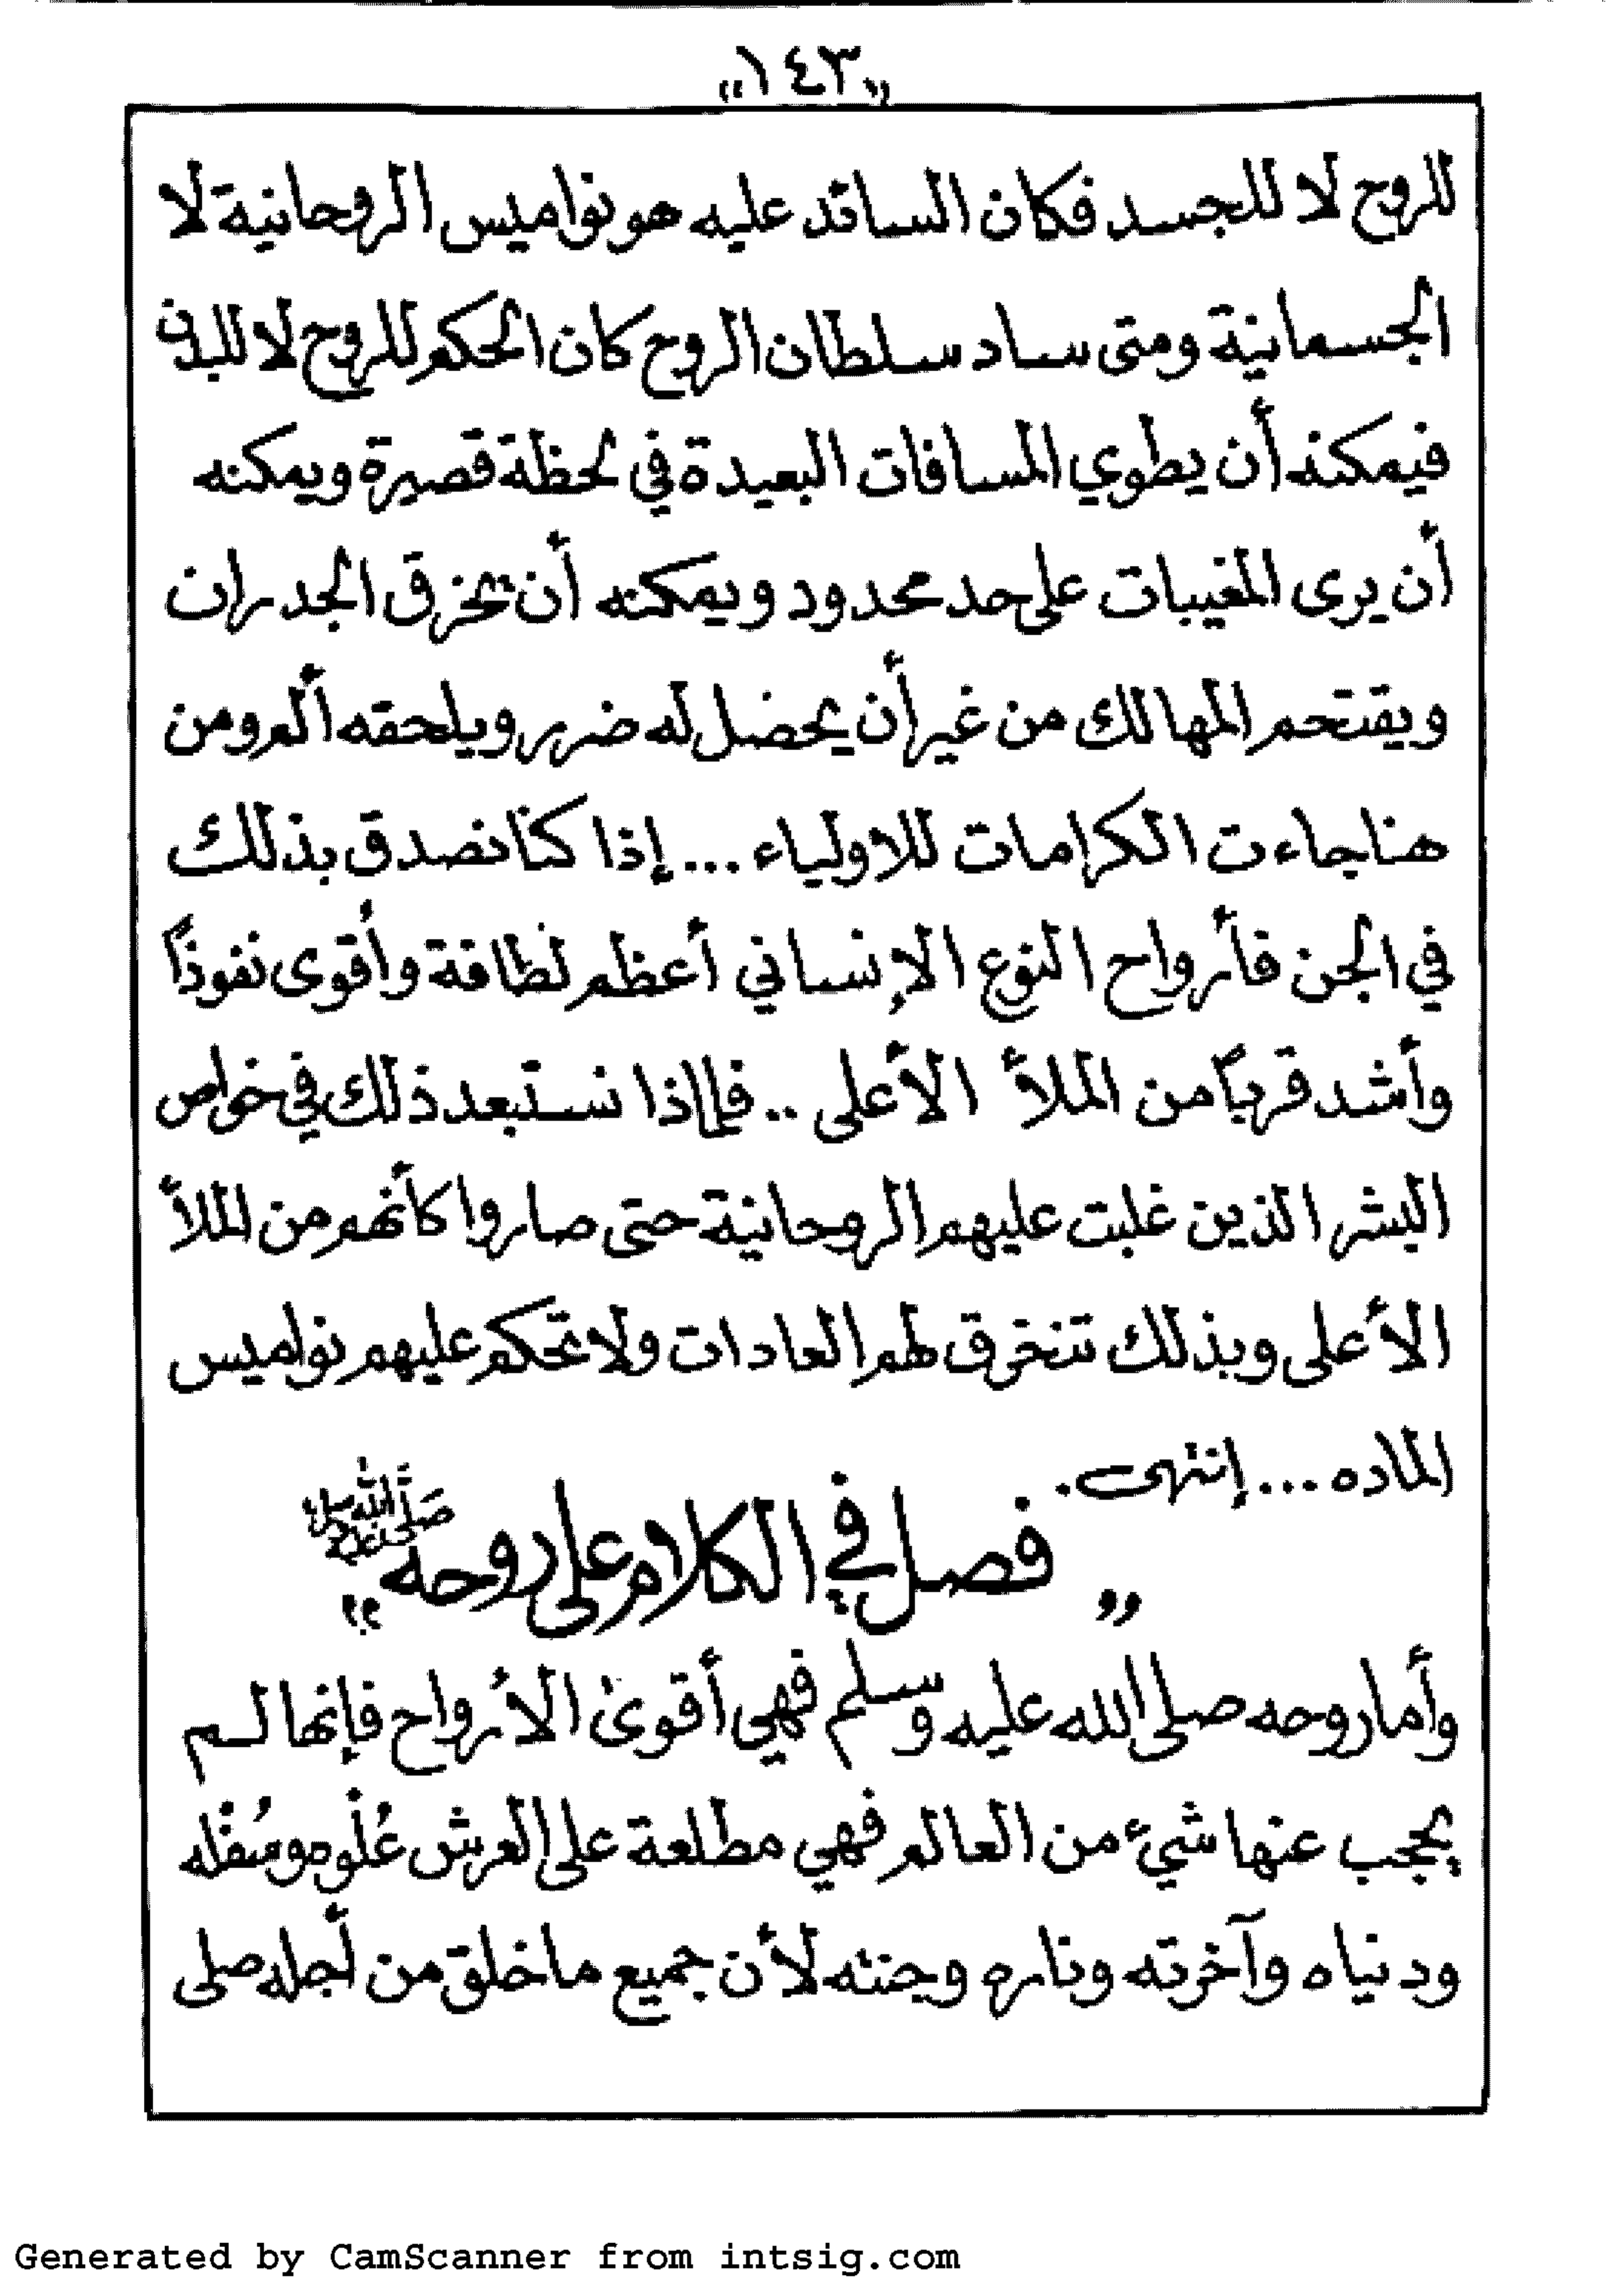 «١٤٣»
للروح لا للجسد فكان السائد عليه هو نواميس الروحانية لا
الجسمانية ومتى ساد سلطان الروح كان الحكم للروح لا للبدن
فيمكنه أن يطوي المسافات البعيدة في لحظة قصيرة ويمكنه
أن يرى المغيبات على حد محدود ويمكنه أن يخرق الجدران
ويقتحم المهالك من غير أن يحضل له ضرر ويلحقه ألم ومن
هنا جاءت الكرامات للاولياء ... إذا كنا نصدق بذلك
في الجن فأرواح النوع الإنساني أعظم لطافة وأقوى نفوذاً
وأشد قرباً من الملأ الأعلى .. فلماذا نستبعد ذلك في خواص
البشر الذين غلبت عليهم الروحانية حتى صاروا كأنهم من الملأ
الأعلى وبذلك تنخرق لهم العادات ولا تحكم عليهم نواميس
الماده ... إنتهى .
„ فصل في الكلام على روحه ﷺ “
وأما روحه صلى الله عليه وسلم فهي أقوى الأرواح فإنها لم
يحجب عنها شيء من العالم فهي مطلعة على العرش عُلْوِه وسُفْلِه
ودنياه وآخرته وناره وجنته لأن جميع ما خلق من أجله صلى
Generated by CamScanner from intsig.com